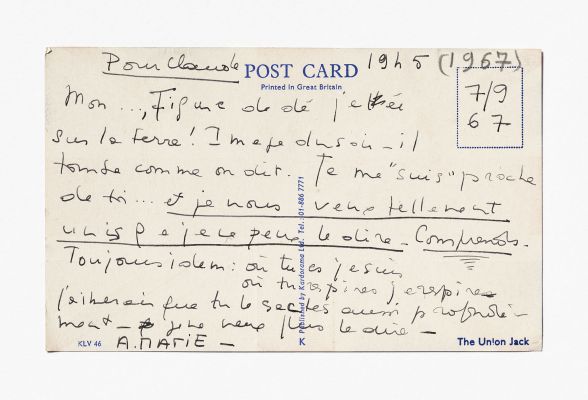 Pour Claude
POST CARD
19h5 (1967)
Printed in Great Britain
7/9
67
Mon ..., Figure de dé jetée
sur la terre! Image du soir - il
tombe comme on dit. Je me "suis" proche
de toi ... et je nous veux tellement
unis que je ne peux le dire - Comprends -
Toujours idem: où tu es je suis
où tu respires je respire
j'aimerais que tu le saches aussi profondé-
ment - je ne veux plus le dire -
A. MARIE -
Published by Kardorama Ltd. Tel.: 01-886 7771
KLV 46
K
The Union Jack